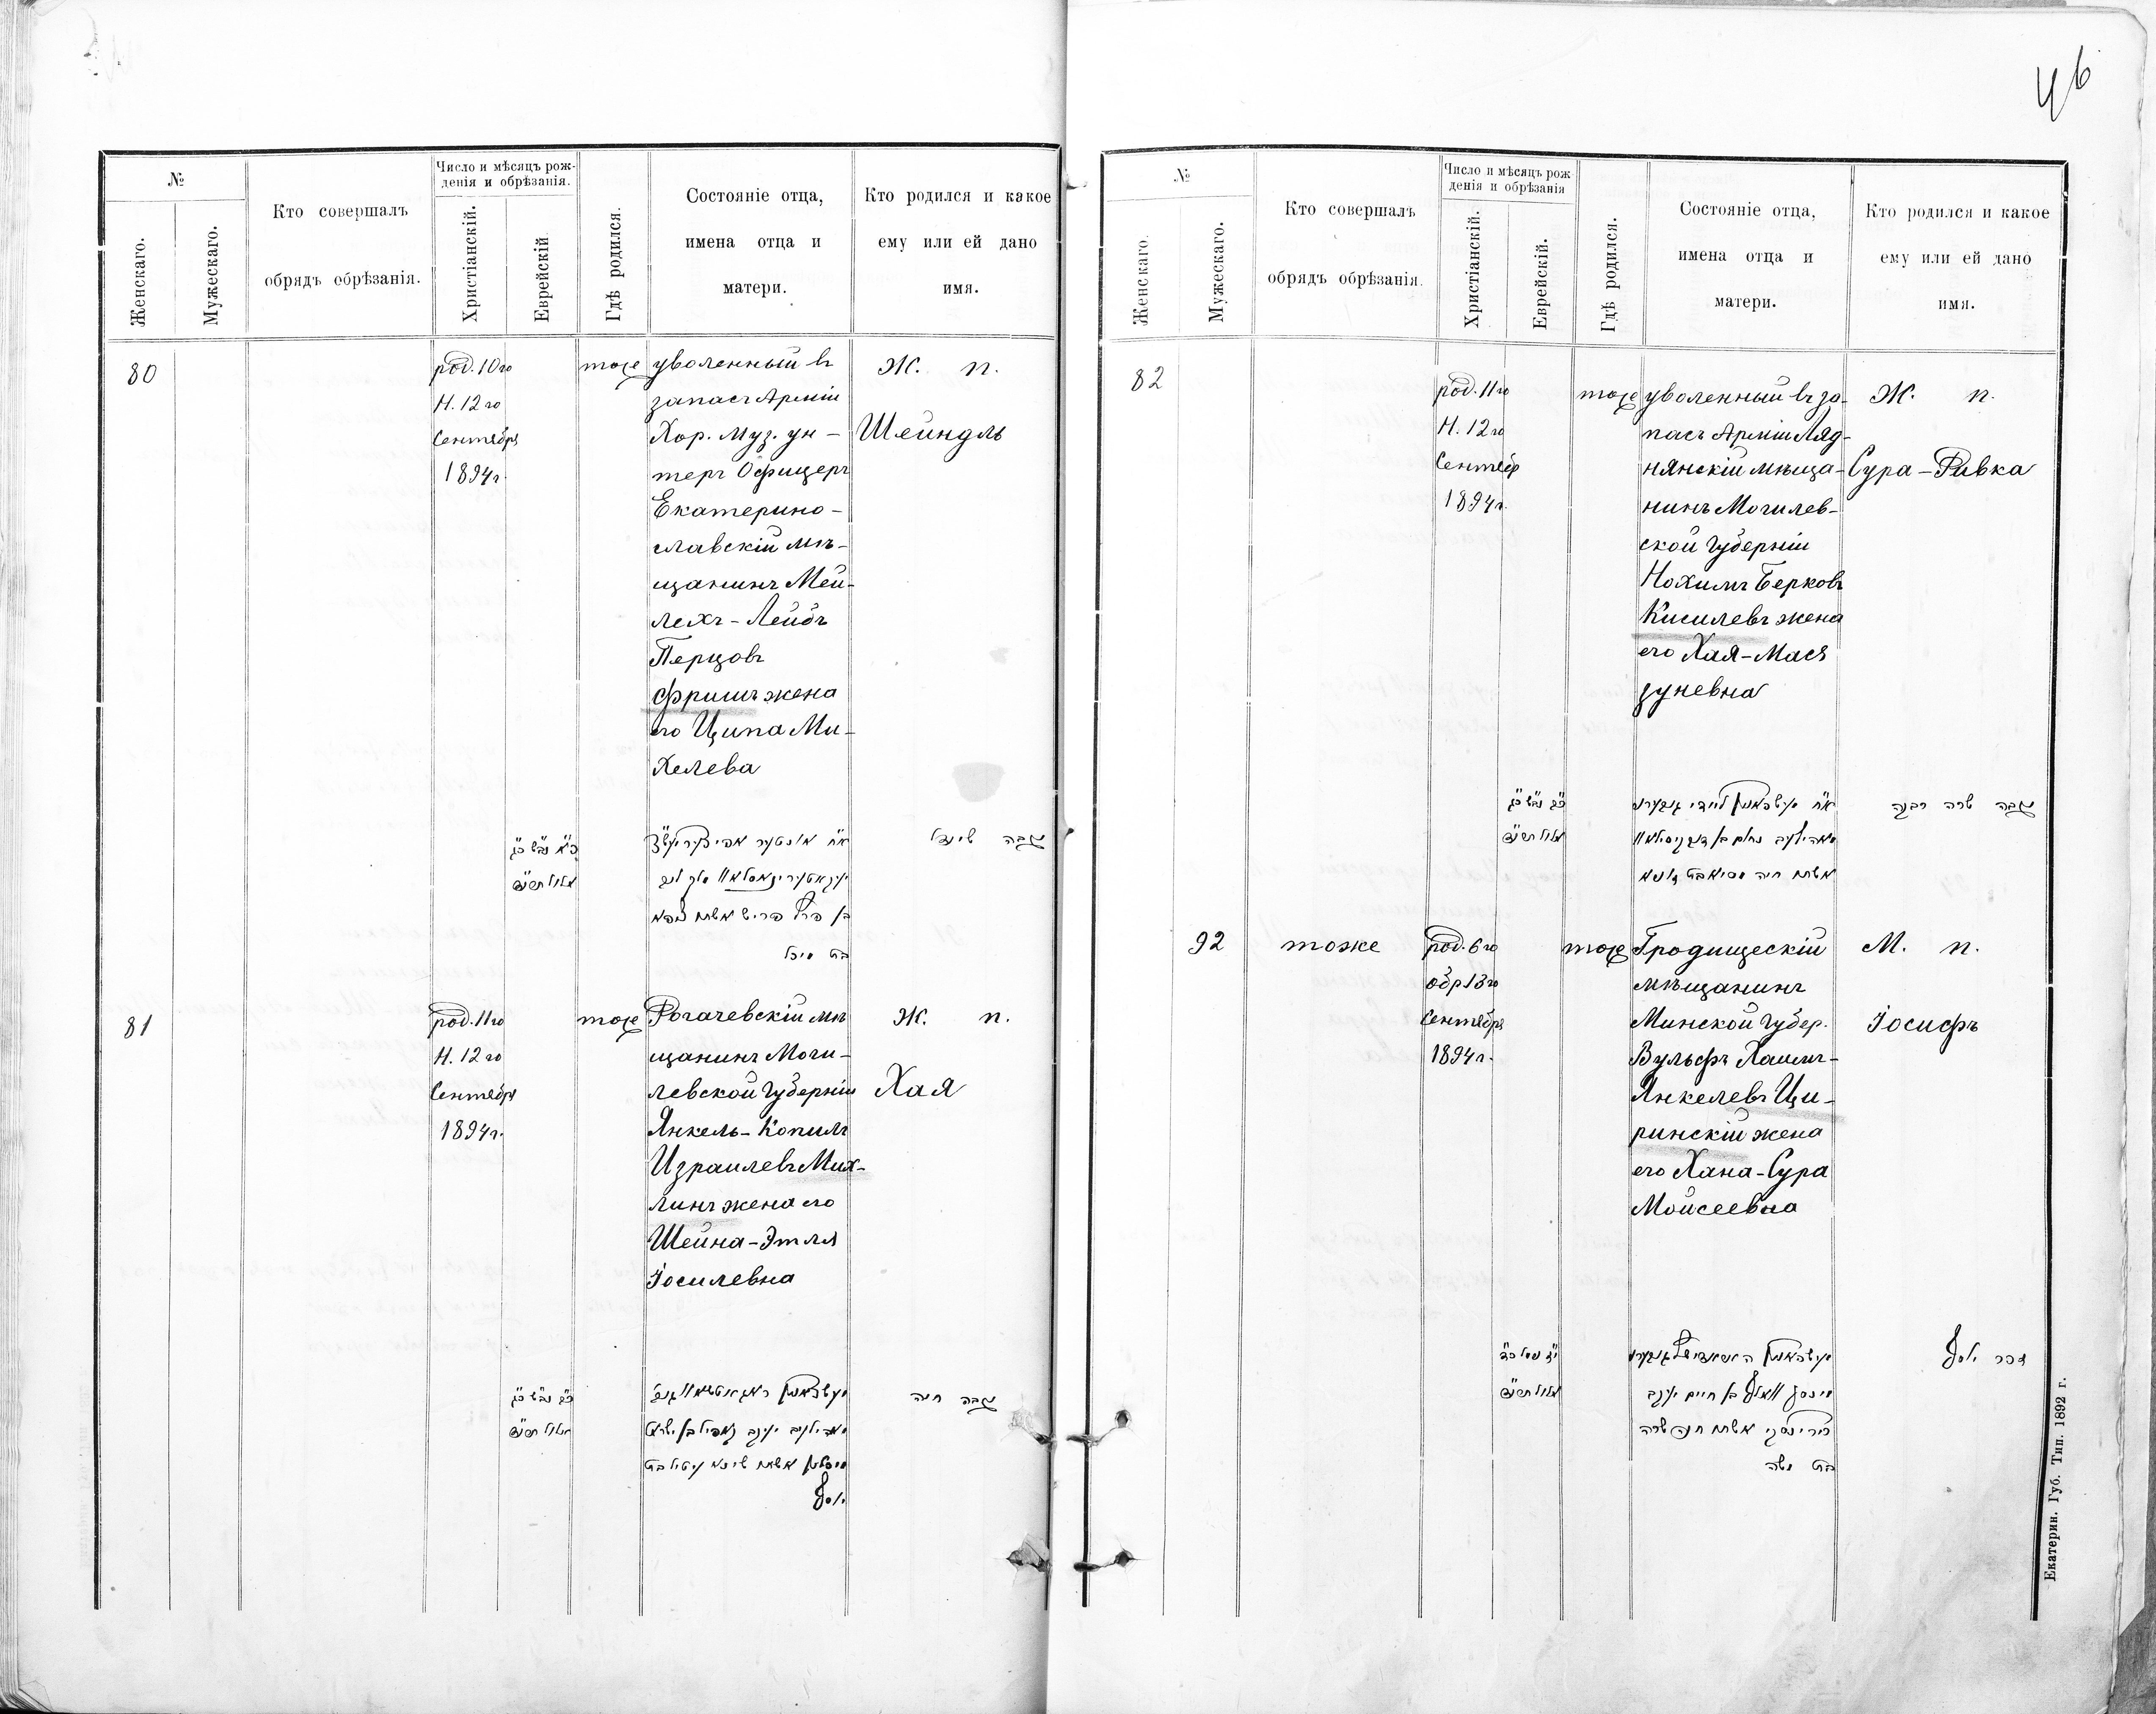 46
№
Женскаго.
Мужескаго.
Кто совершалъ
обрядъ обрѣзанія.
Число и мѣсяцъ рож-
денія и обрѣзанія.
Христіанскій.
Еврейскій
Гдѣ родился.
Состояніе отца,
имена отца и
матери.
Кто родился и какое
ему или ей дано
имя.
80
род. 10го
Н. 12го
Сентября
1894г.
тоже
уволенный въ
запасъ Арміи
Хор. Муз. ун-
теръ Офицеръ
Екатерино-
славскій мѣ-
щанинъ Мей-
лехъ-Лейбъ
Перцовъ
Фришъ жена
его Ципа Ми-
хелева
Ж. п.
Шейндль
נקבה שינדל
בת מיכל
81
род. 11го
Н. 12го
Сентября
1894г.
тоже
Рогачевскій мѣ
щанинъ Моги-
левской Губерніи
Янкель-Копилъ
Израилевъ Мих-
линъ жена его
Шейна-Этля
Іосилевна
Ж. п.
Хая
נקבה חיה
יוסף
№
Женскаго.
Мужескаго.
Кто совершалъ
обрядъ обрѣзанія.
Число и мѣсяцъ рож
денія и обрѣзанія
Христіанскій.
Еврейскій.
Гдѣ родился.
Состояніе отца,
имена отца и
матери.
Кто родился и какое
ему или ей дано
имя.
82
род. 11го
Н. 12го
Сентябр
1894г.
тоже
уволенный въ за-
пасъ Арміи Ляд-
нянскій мѣща-
нинъ Могилев-
ской Губерніи
Нохимъ Берковъ
Кисилевъ жена
его Хая-Мася
Зуневна
Ж. п.
Сура-Ривка
נקבה שרה רבקה
92
тоже
род. 6го
обр 13го
Сентября
1894г.
тоже
Гродищескій
мѣщанинъ
Минской Губер.
Вульфъ Хаимъ-
Янкелевъ Ци-
ринскій жена
его Хана-Сура
Мойсеевна
М. п.
Іосифъ
זכר יוסף
בת משה
Екатерин. Губ. Тип. 1892 г.